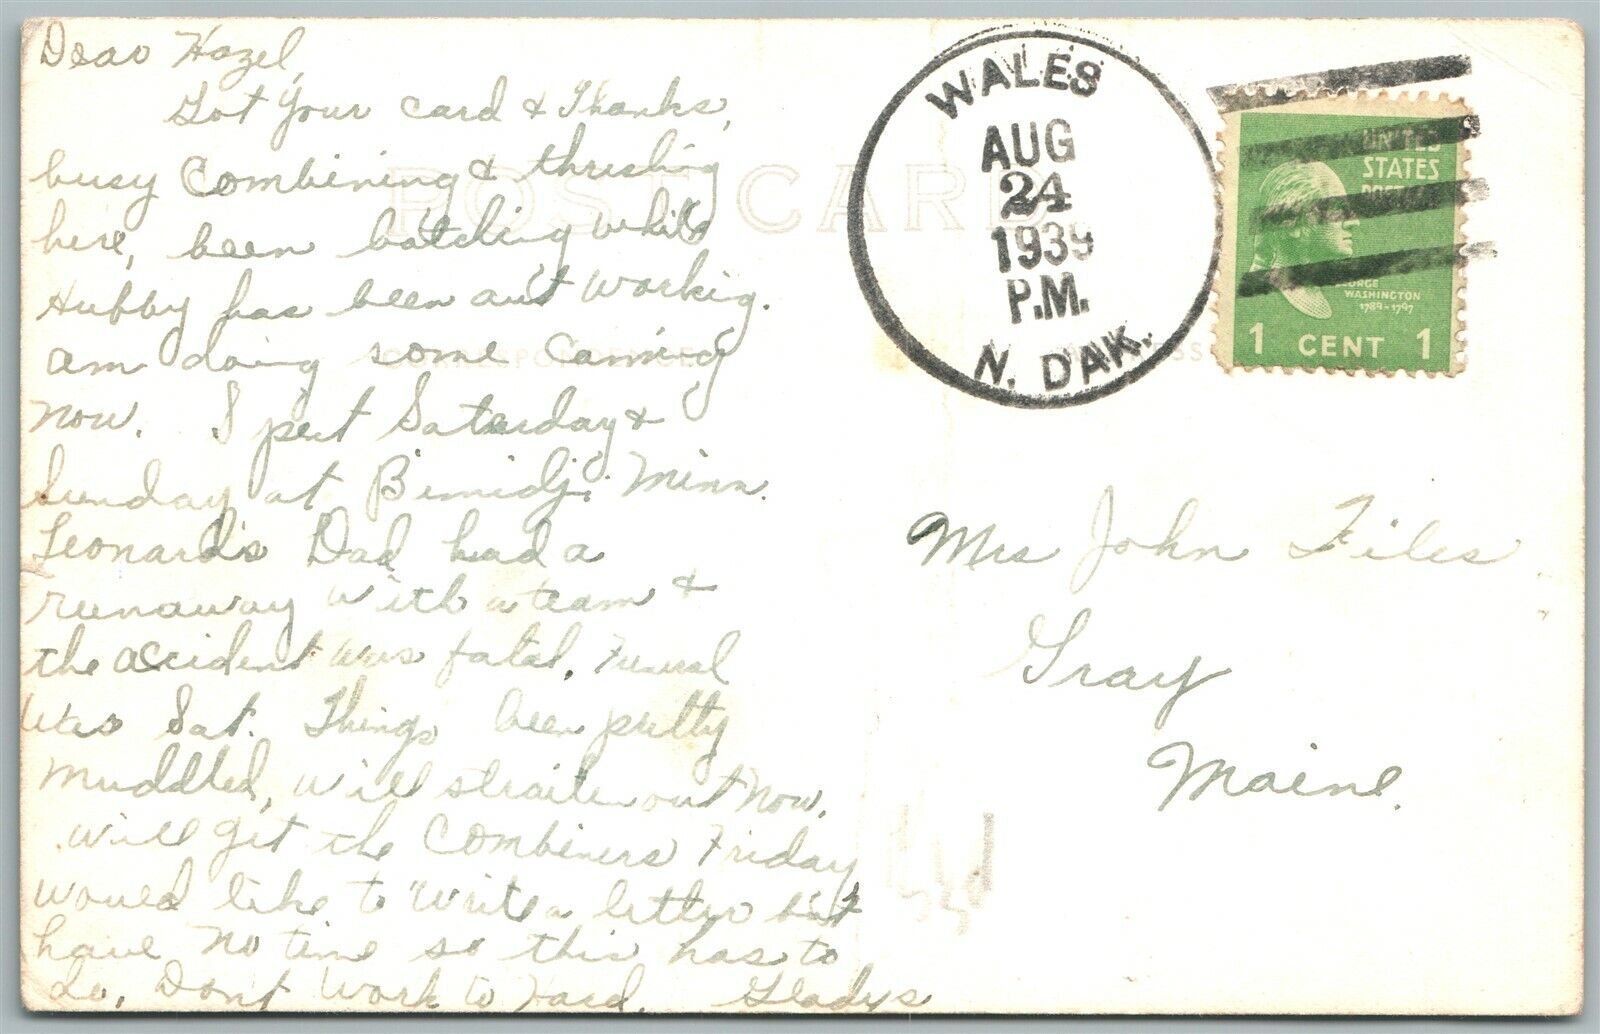 Dear Hazel,
Got your card & Thanks,
busy Combining & thrushing
here, been batching while
Hubby has been out working.
am doing some Canning
now. Spent Saturday &
Sunday at Bimidji Minn.
Leonard's Dad had a
runaway with a team &
the accident was fatal. Funeral
was Sat. Things been pretty
muddled, will straiten out now.
will get the Combiners Friday
would like to write a letter but
have no time so this has to
do, Dont work to Hard. Gladys
POST CARD
CORRESPONDENCE
WALES
AUG
24
1939
P.M.
N. DAK.
UNITED
STATES
POSTAGE
GEORGE
WASHINGTON
1789-1797
1 CENT 1
Mrs John Files
Gray
Maine.